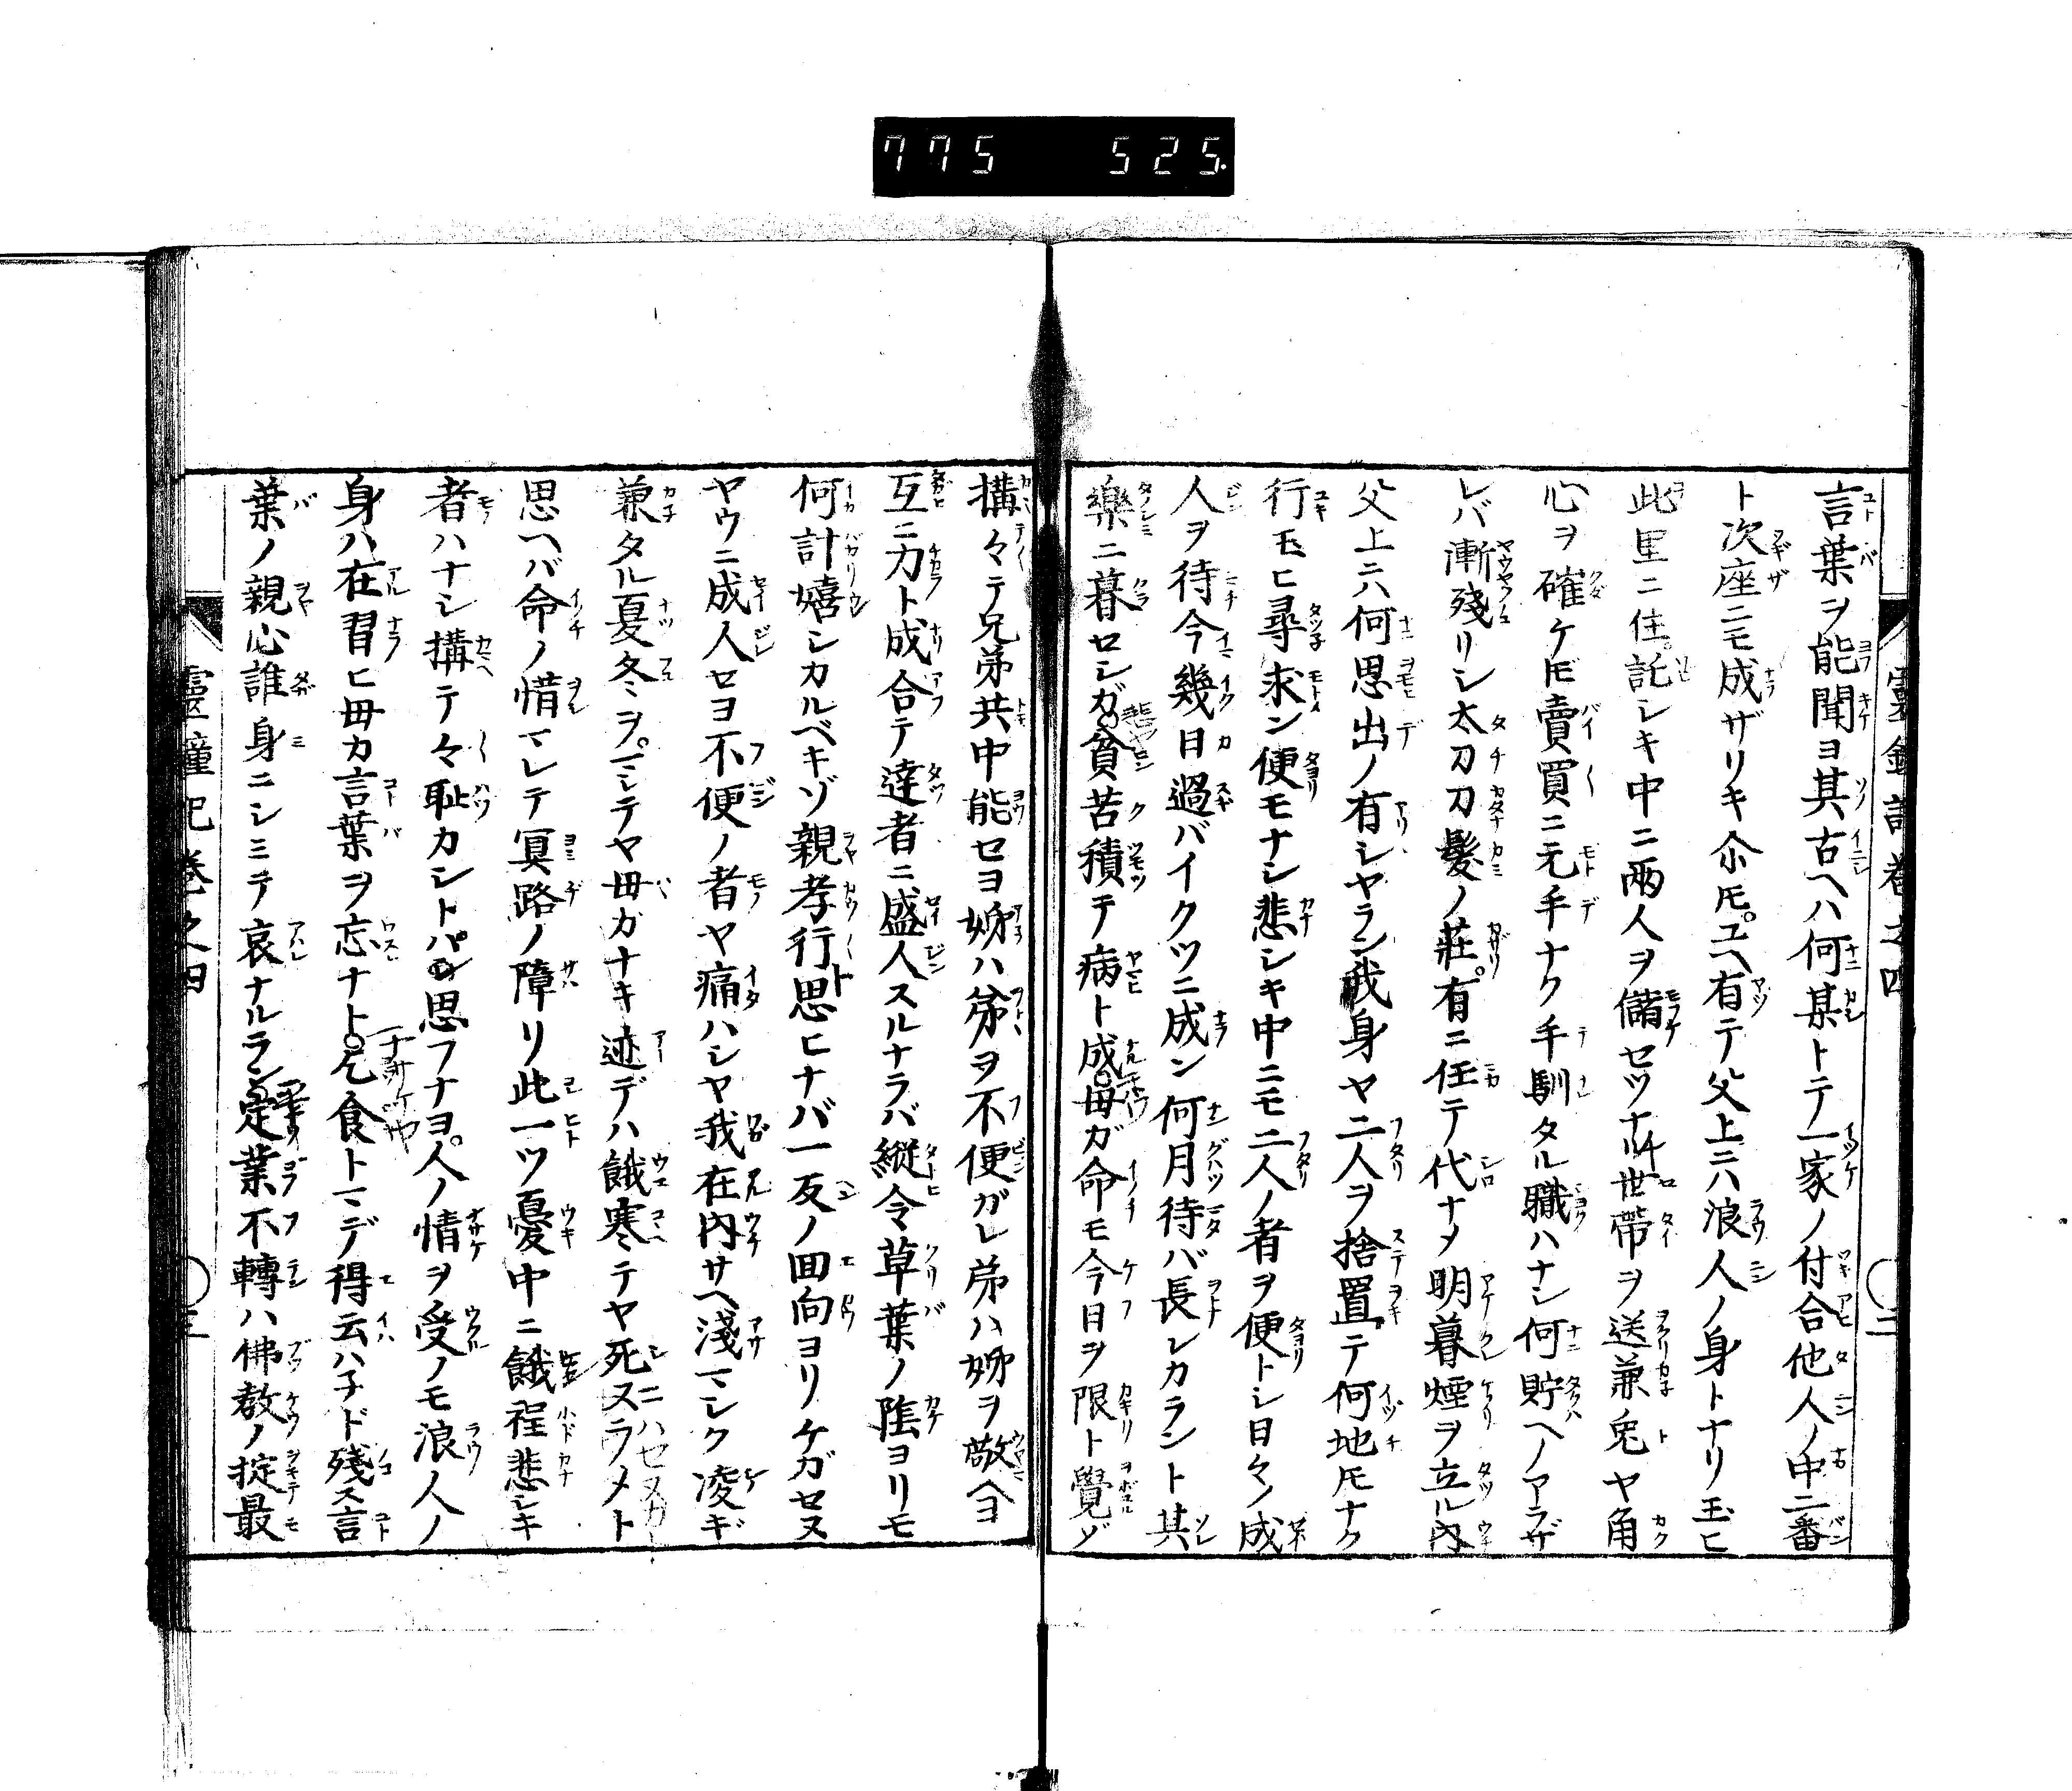 775 525.
言葉ヲ能聞ヨ其古ヘハ何某トテ一家ノ付合他人ノ中二番
ト次座ニモ成ザリキ尒𪜈ユヘ有テ父上ニハ浪人ノ身トナリ玉ヒ
此里ニ住託シキ中ニ兩人ヲ儲セツナル世帶ヲ送兼兎ヤ角
心ヲ碓ケ𪜈賣買ニ元手ナク手馴タル職ハナシ何貯ヘノアラザ
レバ漸殘リシ太刀刀髮ノ莊有ニ任テ代ナメ明暮煙ヲ立ル内
父上ニハ何思出ノ有シヤラン我身ヤ二人ヲ捨置テ何地𪜈ナク
行玉ヒ尋求ン便モナシ悲シキ中ニモ二人ノ者ヲ便トシ日々ノ成
人ヲ待今幾日過バイクツニ成ン何月待バ長シカラント其
樂ニ暮セシガ貧苦積テ病ト成母ガ命モ今日ヲ限ト覺ゾ
構々テ兄弟共中能セヨ姉ハ弟ヲ不便ガレ弟ハ姉ヲ敬ヘヨ
互ニ力ト成合テ達者ニ盛人スルナラバ縱令草葉ノ陰ヨリモ
何計嬉シカルベキゾ親孝行ト思ヒナバ一反ノ囬向ヨリケガセヌ
ヤウニ成人セヨ不便ノ者ヤ痛ハシヤ我在内サヘ淺マシク凌ギ
兼タル夏冬ヲマシテヤ母ガナキ迹デハ餓寒テヤ死スラメト
思ヘバ命ノ惜マレテ冥路ノ障リ此一ツ憂中ニ餓程悲シキ
者ハナシ構テ々恥カシトバシ思フナヨ人ノ情ヲ受ノモ浪人ノ
身ハ在習ヒ母カ言葉ヲ忘ナト乞食トマデ得云ハ子ド殘ス言
葉ノ親心誰身ニシミテ哀ナルラン定業不轉ハ佛敎ノ掟最
卷之四